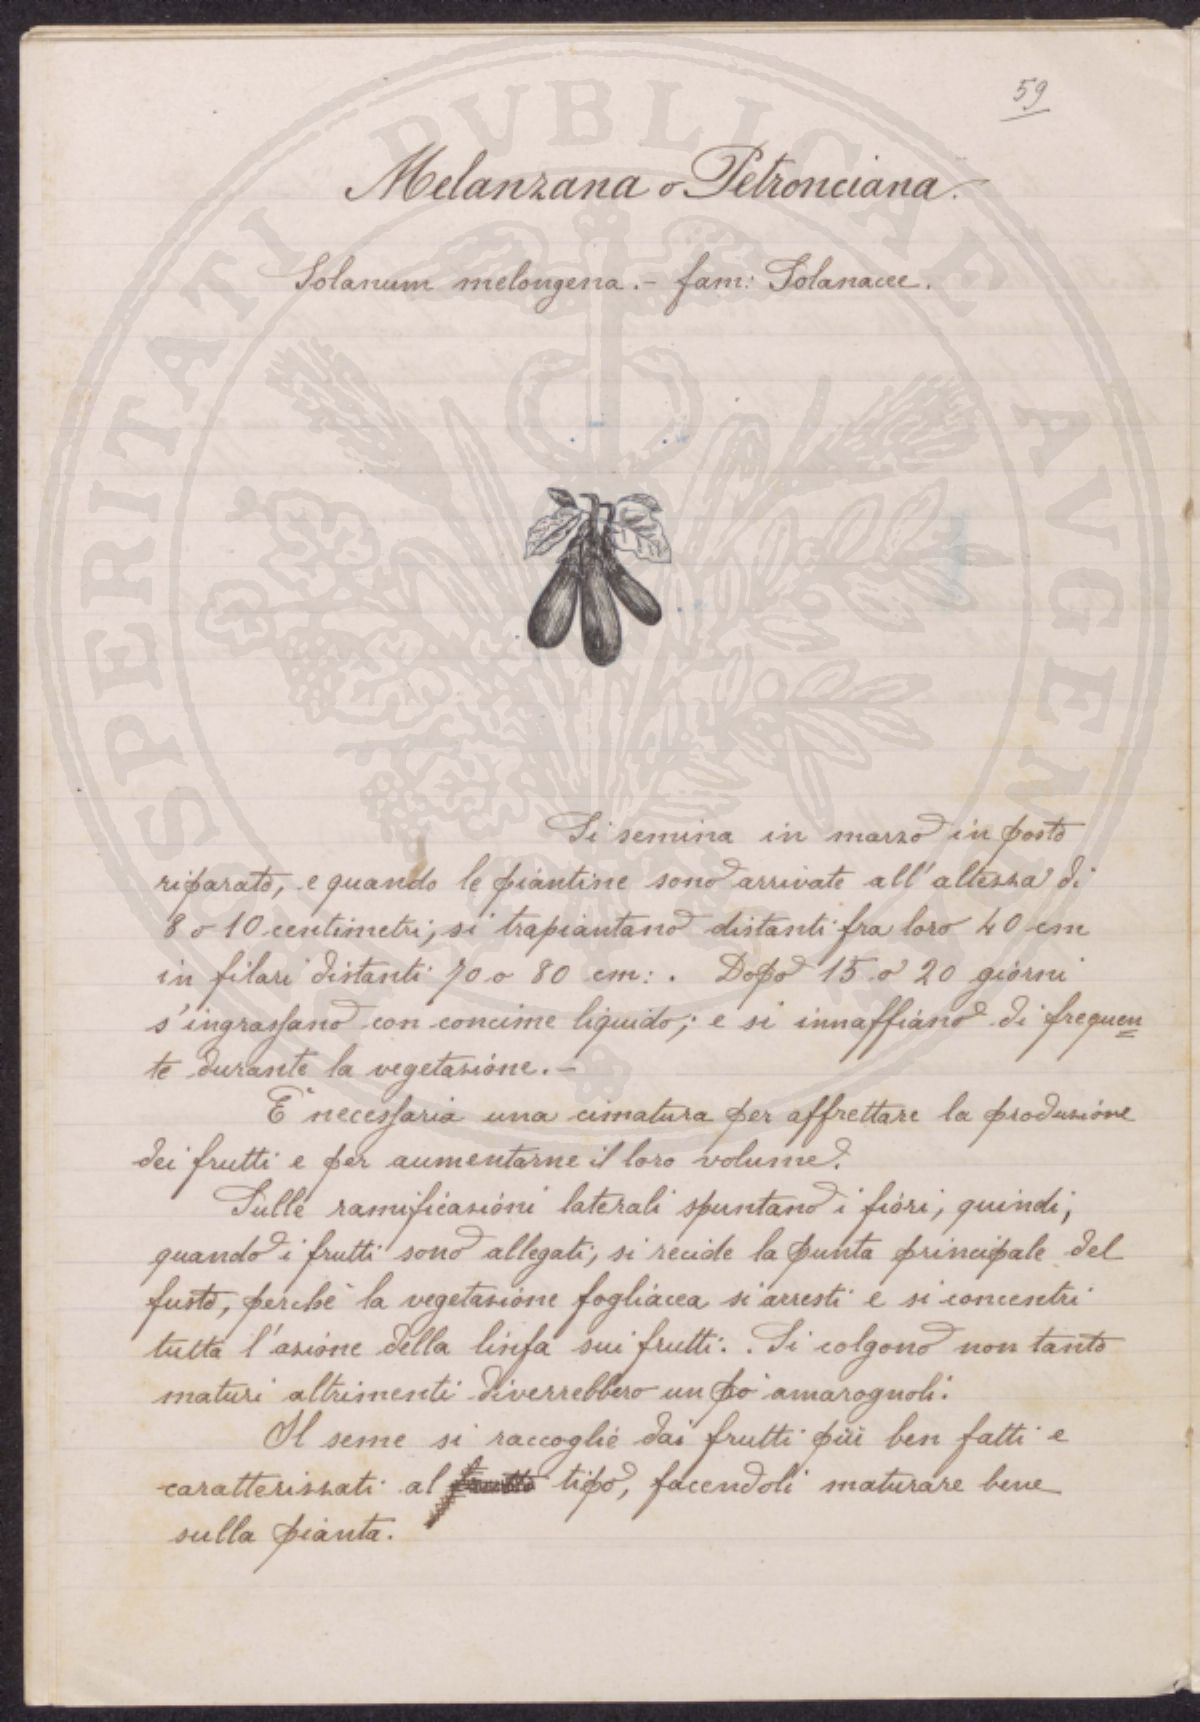 59
Melanzana o Petronciana.
Solanum melongena. - fam: Solanacee.
Si semina in marzo in posto
riparato, e quando le piantine sono arrivate all'altezza di
8 o 10 centimetri, si trapiantano distanti fra loro 40 cm
in filari distanti 70 o 80 cm: . Dopo 15 o 20 giorni
s'ingrassano con concime liquido; e si innaffiano di frequen
te durante la vegetazione. -
E' necessaria una cimatura per affrettare la produzione
dei frutti e per aumentarne il loro volume.
Sulle ramificazioni laterali spuntano i fiori, quindi,
quando i frutti sono allegati, si recide la punta principale del
fusto, perchè la vegetazione fogliacea si arresti e si concentri
tutta l'azione della linfa sui frutti. . Si colgono non tanto
maturi altrimenti diverrebbero un pò amarognoli.
Il seme si raccoglie dai frutti più ben fatti e
caratterizzati al tipo, facendoli maturare bene
sulla pianta.
SPERITATI PVBLICAE AVGEN